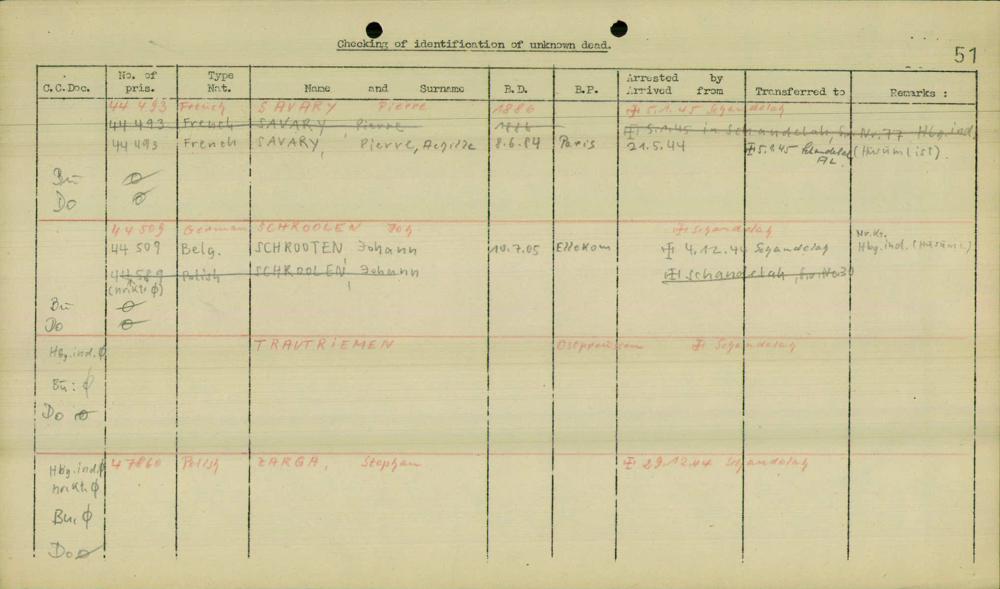 Checking of identification of unknown dead.
51
C.C.Doc. No. of pris. Type Nat. Name and Surname B.D. B.P. Arrested by Arrived from Transferred to Remarks :
44 493 French SAVARY Pierre 1886 5.1.45 Schandelah
44 493 French SAVARY, Pierre 1886 5.1.45 in Schandelah, Nr. 77 Hbg.ind.
44 493 French SAVARY, Pierre, Achille 8.6.84 Paris 21.5.44 5.1.45 Schandelah (Husum list).
Bu Ø
Do Ø
44 509 German SCHROOLEN Joh Schandelah
44 509 Belg. SCHROOTEN, Johann 10.7.05 Ellekom 4.12.44 Schandelah Nr.Kt. Hbg.ind. (Husum l.)
44 589 Polish SCHROOLEN, Johann Schandelah
(nrkt. Ø)
Bu Ø
Do Ø
Hbg.ind. Ø TRAUTRIEMEN Ostpreussen Schandelah
Bu: Ø
Do Ø
Hbg.ind. Ø 47860 Polish ZARGA, Stephan 29.12.44 Schandelah
nr.Kt. Ø
Bu. Ø
Do Ø